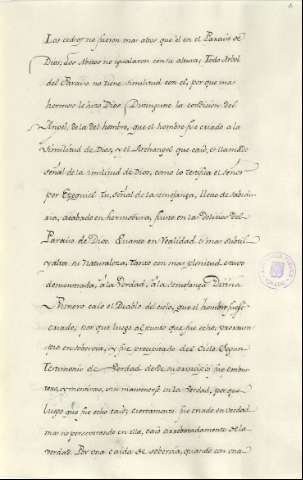 Los cedros no fueron mas altos que el en el Paraiso de
Dios; Los Abetos no igualaron con su altura; Todo Arbol
del Paraiso no tiene similitud con el, por que mas
hermoso le hizo Dios. Distingue la condicion del
Angel, de la del hombre, que el hombre fue criado a la
Similitud de Dios, y el Archangel que caio, es llamado
señal de la similitud de Dios, como lo testifica el Señor
por Ezequiel: Tu, señal de la semejanza, lleno de sabidu-
ria, acabado en hermosura, fuiste en las Delicias del
Paraiso de Dios. Quanto en realidad es mas subtil
y alta su naturaleza, tanto con mas plenitud estuvo
a la verdad, a la semejanza Divina
Primero caio el Diablo del cielo, que el hombre fuesse
criado, por que luego al punto que fue echo,
en sobervia, y fue precipitado del Cielo. Segun
Testimonio de Verdad desde su principio fue embus-
tero, y mentiroso, i no en la verdad, porque
luego que fue echo caio; ciertamente fue criado en verdad
mas no perseverando en ella, caio arrebatadamente de la
verdad. Por una caida de sobervia, quando con una